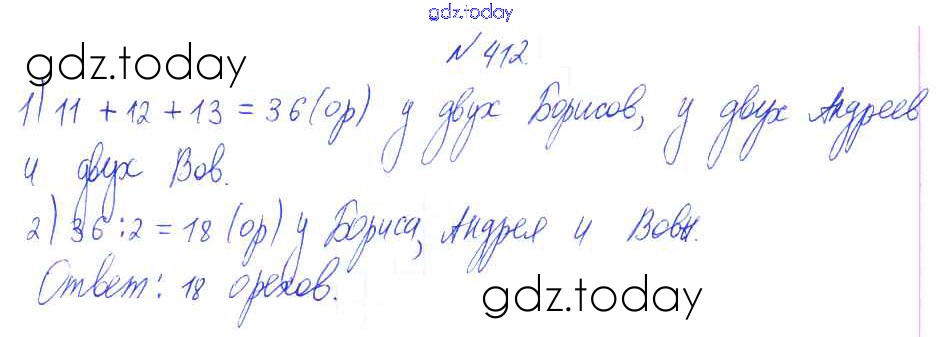 gdz.today
№ 412.
gdz.today
1) 11 + 12 + 13 = 36 (ор) у двух Борисов, у двух Андреев
и двух Вов.
2) 36 : 2 = 18 (ор) у Бориса, Андрея и Вовы.
Ответ: 18 орехов.
gdz.today